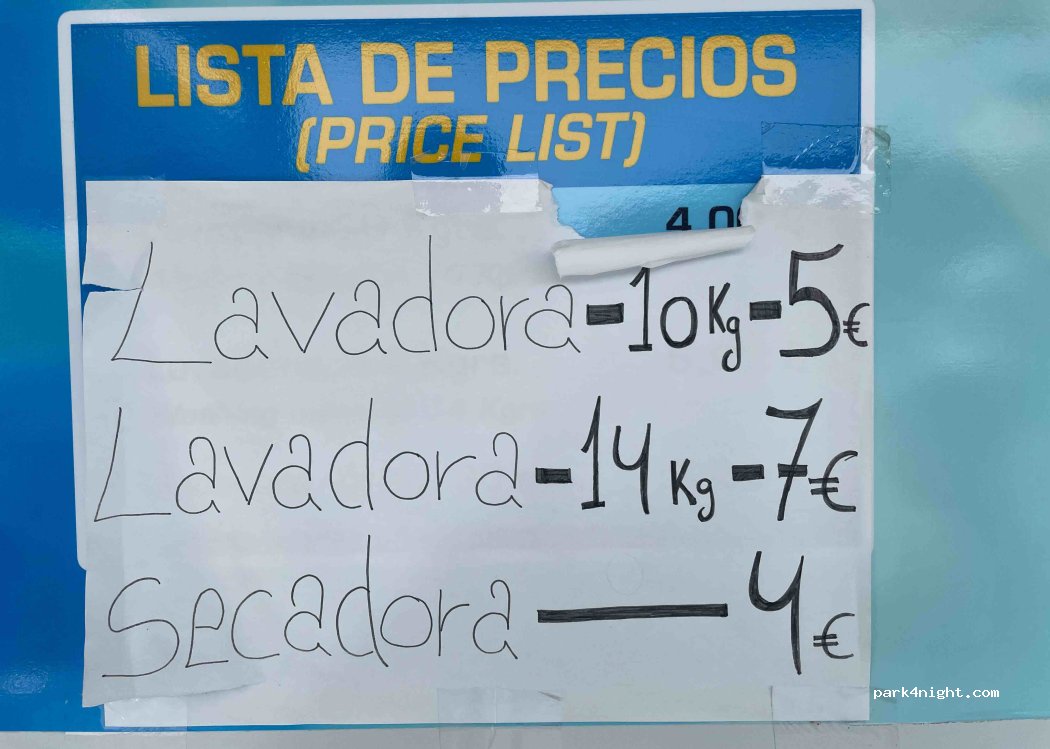 LISTA DE PRECIOS
(PRICE LIST)
4,0
Lavadora-10Kg-5€
Lavadora-14Kg-7€
Secadora—4€
park4night.com